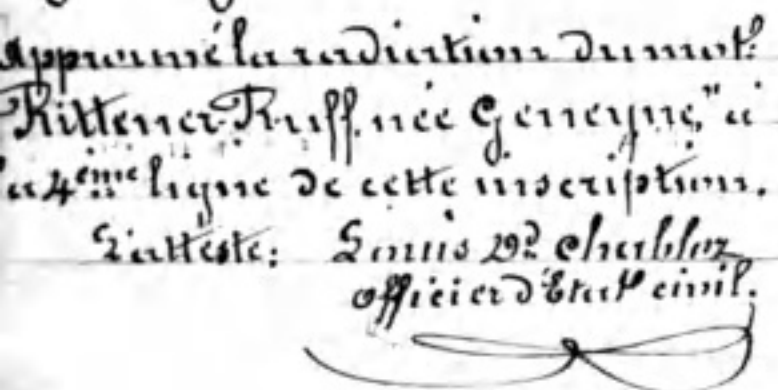 Approuvé la radiation du mot:
Rittener-Ruff née Geneyne," à
la 4ème ligne de cette inscription.
L'atteste: Louis Dd Chabloz
officier d'État civil.